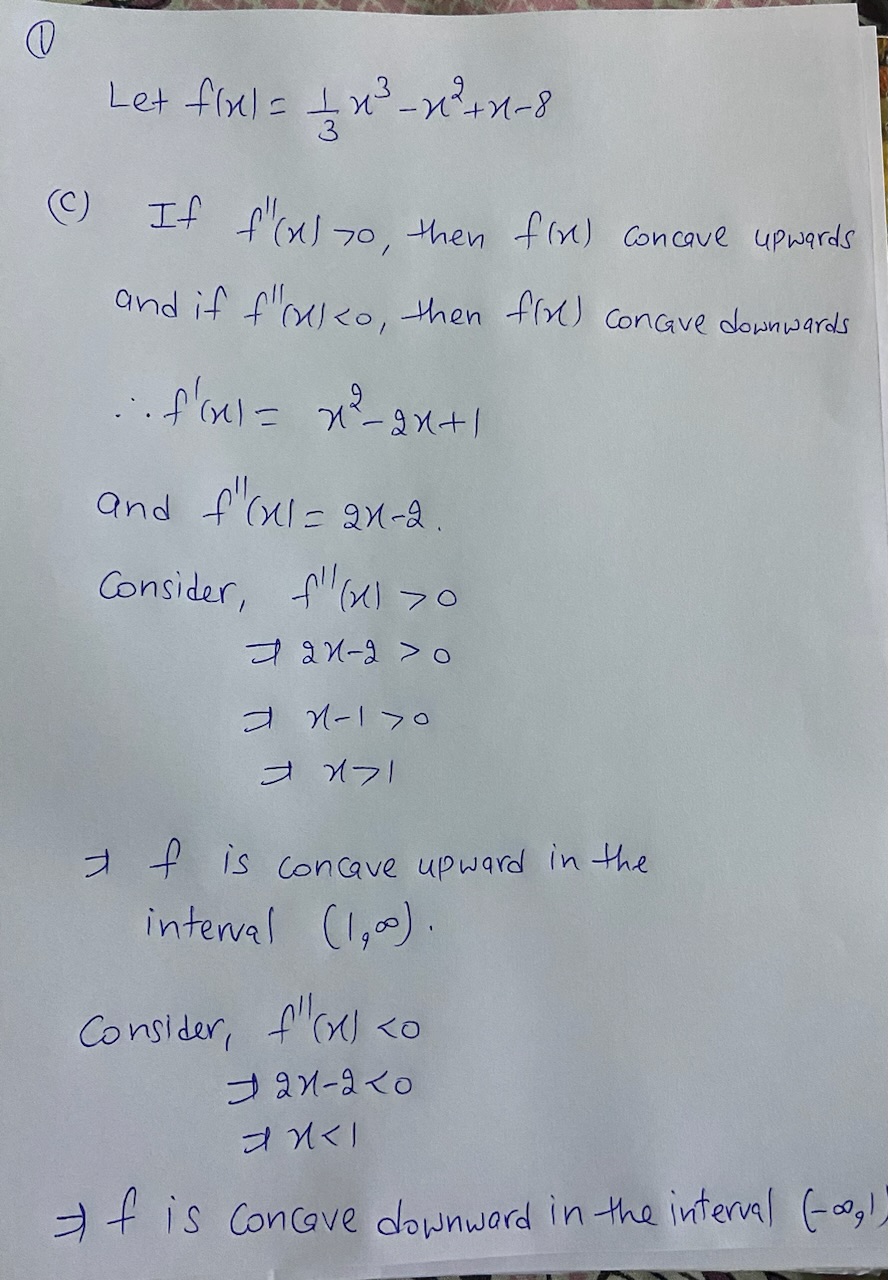 ①
Let f(x) = 1/3 x³ - x² + x - 8
(C) If f''(x) > 0, then f(x) concave upwards
and if f''(x) < 0, then f(x) concave downwards
∴ f'(x) = x² - 2x + 1
and f''(x) = 2x - 2.
Consider, f''(x) > 0
⇒ 2x - 2 > 0
⇒ x - 1 > 0
⇒ x > 1
⇒ f is concave upward in the
interval (1, ∞).
Consider, f''(x) < 0
⇒ 2x - 2 < 0
⇒ x < 1
⇒ f is concave downward in the interval (-∞, 1)